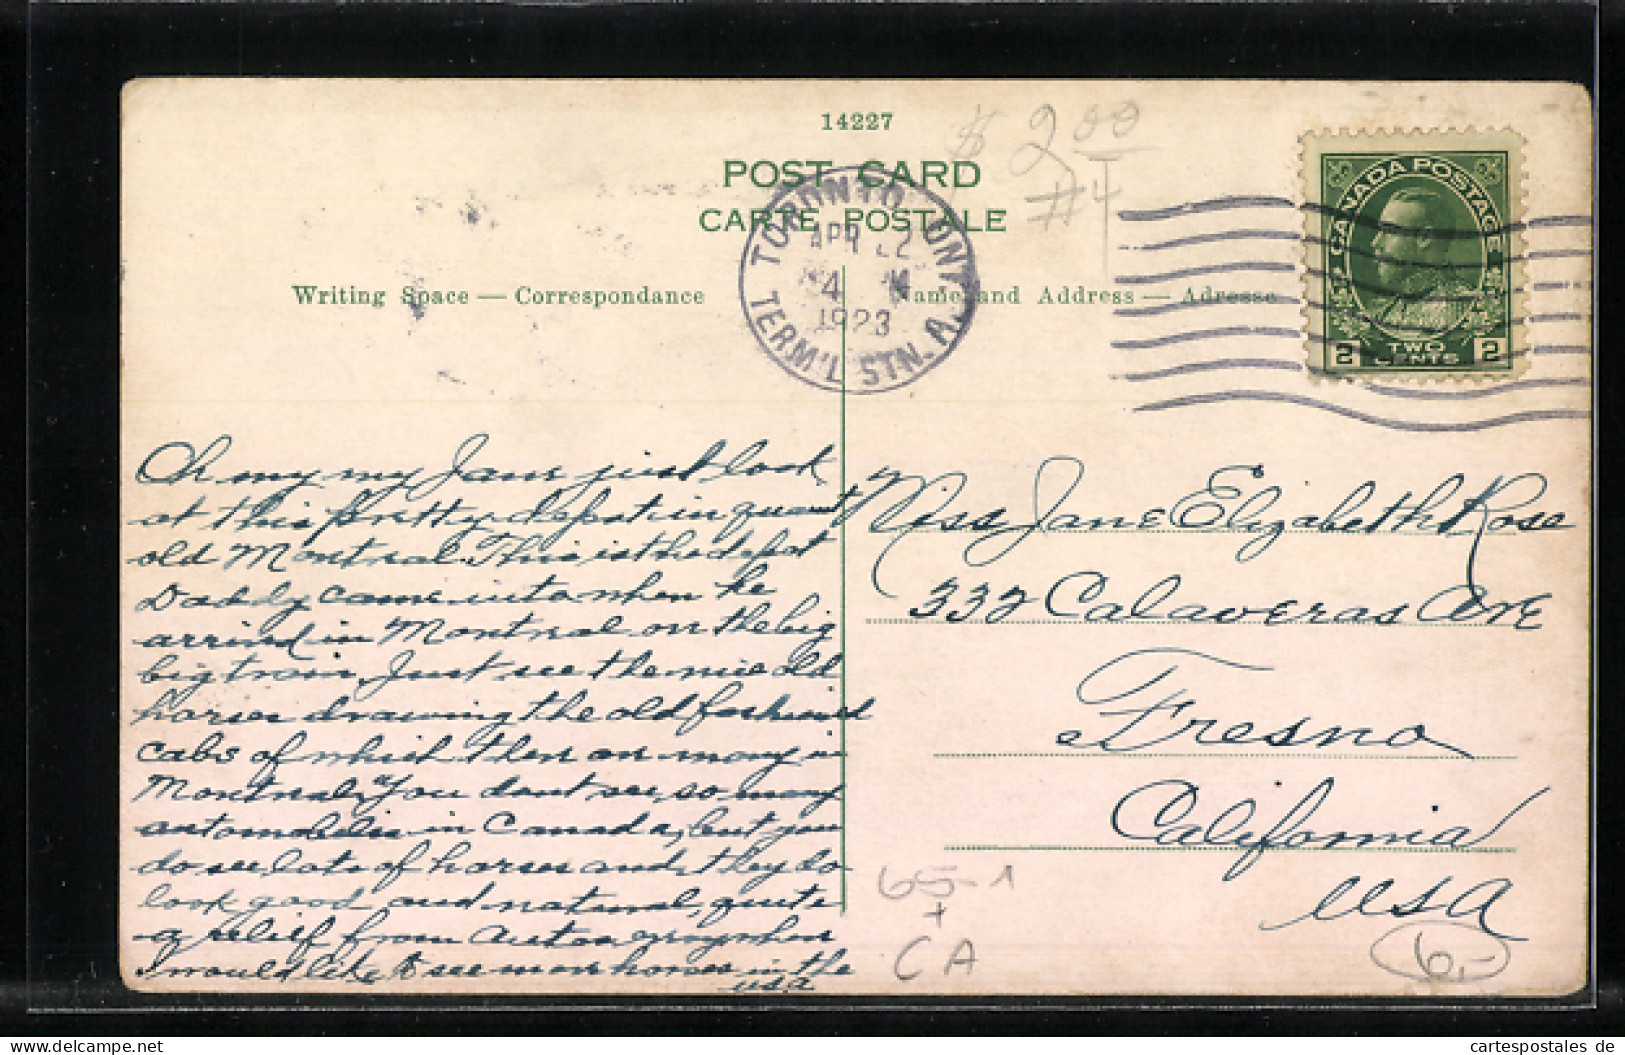 14227
$ 2.00
#4
POST CARD
CARTE POSTALE
TORONTO, ONT.
APR 22
4 M
1923
TERM'L STN. A.
CANADA POSTAGE
2 TWO CENTS 2
Writing Space — Correspondance
Name and Address — Adresse
Oh my my Jane just look
at this pretty depot in quaint
old Montreal. This is the depot
Daddy came into when he
arrived in Montreal on the big
big train. Just see the nice old
horses drawing the old fashioned
cabs of which there are many in
Montreal. You dont see so many
automobiles in Canada, but you
do see lots of horses and they do
look good and natural, quite
a relief from Autos anywhere
I would like to see more horses in the
USA
Miss Jane Elizabeth Rose
332 Calaveras Ave
Fresno
California
USA
65-1
+
CA
6,-
cartespostales de